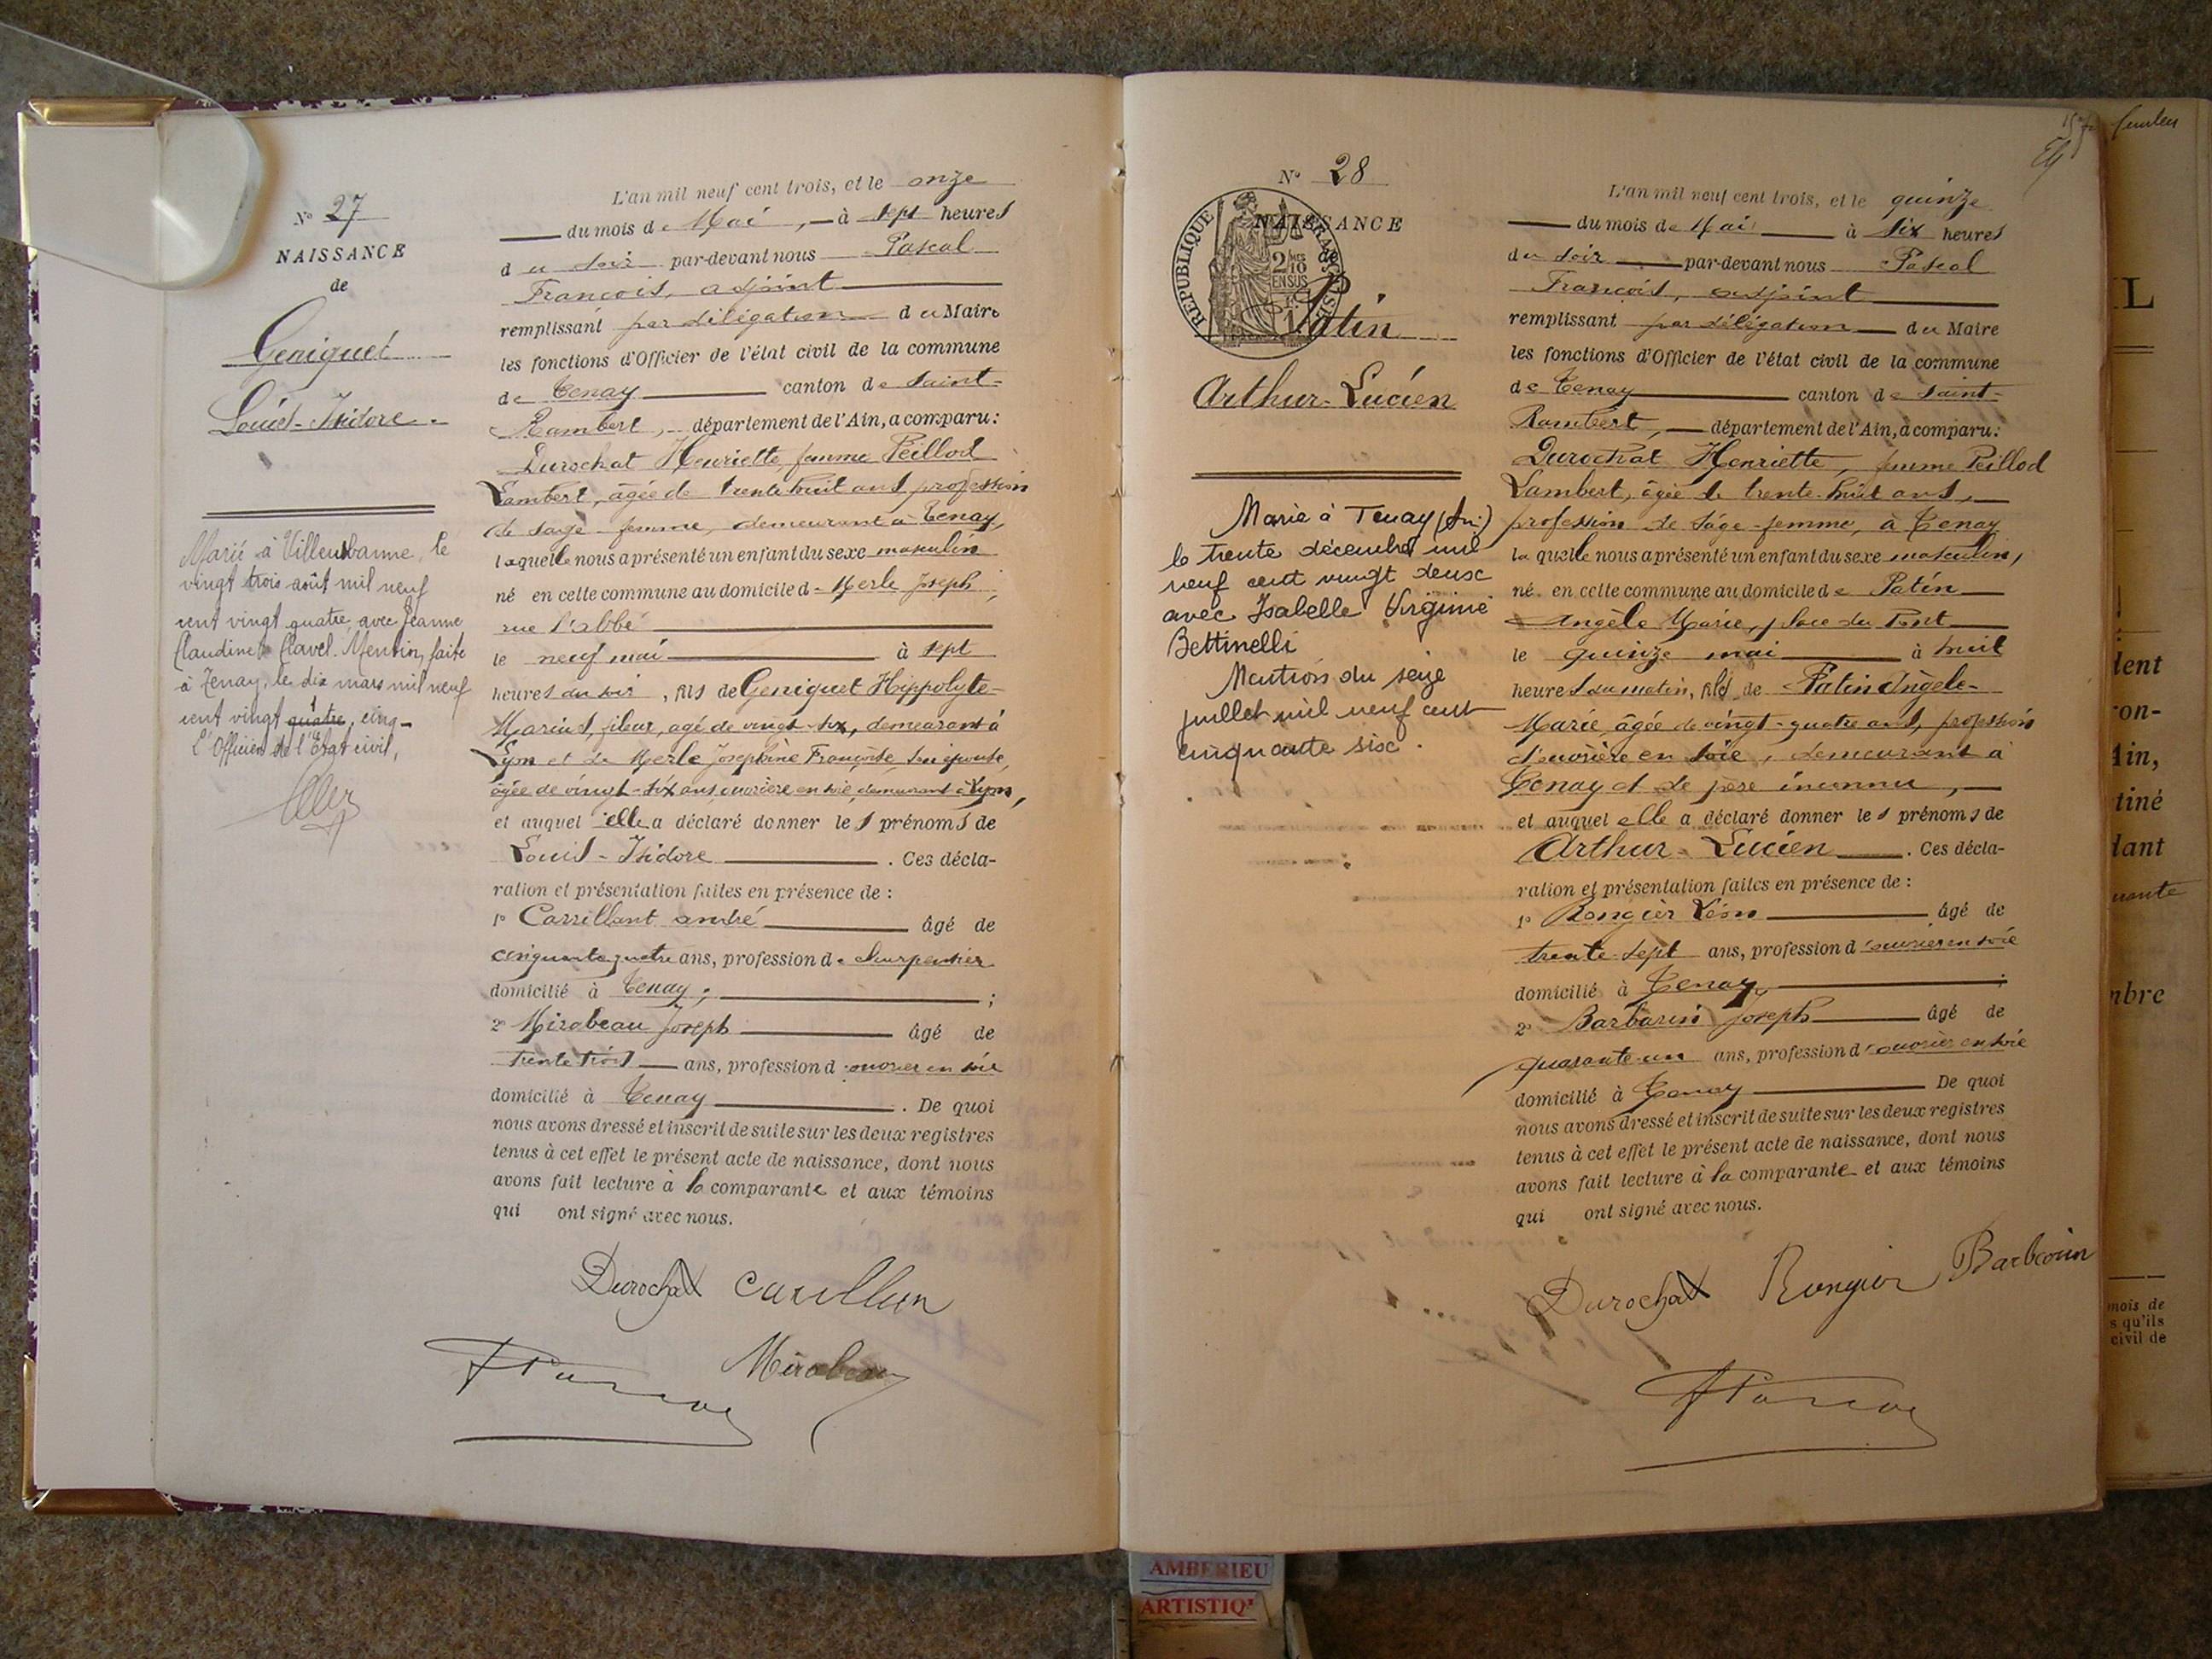 N° 27
NAISSANCE
de
Geniquet
Louis-Isidore
Marié à Villeurbanne, le
vingt trois août mil neuf
cent vingt quatre avec Jeanne
Claudine Clavel. Mention faite
à Tenay, le dix mars mil neuf
cent vingt quatre, cinq
L'Officier de l'État civil,
L'an mil neuf cent trois, et le onze
du mois de Mai, à sept heures
du soir par-devant nous Pascal
François, adjoint
remplissant par délégation du Maire
les fonctions d'Officier de l'état civil de la commune
de Tenay canton de Saint-
Rambert, département de l'Ain, a comparu:
Durochat Henriette, femme Peillod
Lambert, âgée de trente huit ans, profession
de sage-femme, demeurant à Tenay,
laquelle nous a présenté un enfant du sexe masculin
né en cette commune au domicile de Merle Joseph,
rue l'abbé
le neuf mai à sept
heures du soir, fils de Geniquet Hippolyte-
Marius, fileur, agé de vingt-six, demeurant à
Lyon et de Merle Joséphine Françoise, son épouse,
âgée de vingt-six ans, ouvrière en soie, demeurant à Lyon,
et auquel elle a déclaré donner les prénoms de
Louis-Isidore. Ces décla-
ration et présentation faites en présence de :
1° Carrillant andré âgé de
cinquante quatre ans, profession de charpentier
domicilié à Tenay; ;
2° Mirabeau Joseph âgé de
trente trois ans, profession d'ouvrier en soie
domicilié à Tenay. De quoi
nous avons dressé et inscrit de suite sur les deux registres
tenus à cet effet le présent acte de naissance, dont nous
avons fait lecture à la comparante et aux témoins
qui ont signé avec nous.
Durochat
Mirabeau
N° 28
NAISSANCE
de
REPUBLIQUE FRANÇAISE
2/10 EN SUS
Patin
Arthur-Lucien
Marié à Tenay (Ain)
le trente décembre mil
neuf cent vingt deux
avec Isabelle Virginie
Bettinelli
Mention du seize
juillet mil neuf cent
cinquante six.
L'an mil neuf cent trois, et le quinze
du mois de Mai à six heures
du soir par-devant nous Pascal
François, adjoint
remplissant par délégation du Maire
les fonctions d'Officier de l'état civil de la commune
de Tenay canton de Saint-
Rambert, département de l'Ain, a comparu:
Durochat Henriette, femme Peillod
Lambert, âgée de trente-huit ans,
profession de sage-femme, à Tenay
laquelle nous a présenté un enfant du sexe masculin,
né en cette commune au domicile de Patin
Angèle Marie, place du Pont
le quinze mai à huit
heures du matin, fils de Patin Angèle-
Marie, âgée de vingt-quatre ans, profession
d'ouvrière en soie, demeurant à
Tenay et de père inconnu,
et auquel elle a déclaré donner les prénoms de
Arthur-Lucien. Ces décla-
ration et présentation faites en présence de :
1° Rongier Léon âgé de
trente-sept ans, profession d'ouvrier en soie
domicilié à Tenay, ;
2° Barbarin Joseph âgé de
quarante-un ans, profession d'ouvrier en soie
domicilié à Tenay De quoi
nous avons dressé et inscrit de suite sur les deux registres
tenus à cet effet le présent acte de naissance, dont nous
avons fait lecture à la comparante et aux témoins
qui ont signé avec nous.
Durochat Rongier Barbarin
L
dent
on-
Ain,
tiné
dant
mbre
mois de
s qu'ils
civil de
AMBERIEU
ARTISTIQ'